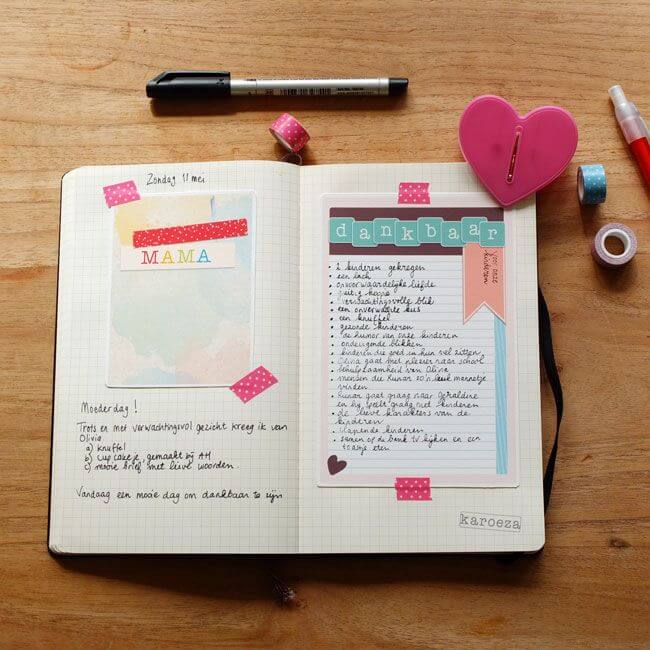 Zondag 11 mei
MAMA
Moederdag !
Trots en met verwachtingsvol gezicht kreeg ik van
Olivia
a) knuffel
b) cupcakeje, gemaakt bij AH
c) mooie brief met lieve woorden.
Vandaag een mooie dag om dankbaar te zijn
dankbaar
voor onze
kinderen
• 2 kinderen gekregen
• een lach
• onvoorwaardelijke liefde
• verwachtingsvolle blik
• een onverwachte kus
• een knuffel
• gezonde kinderen
• de humor van onze kinderen
• ondeugende blikken
• kinderen die goed in hun vel zitten
• Olivia gaat met plezier naar school
• behulpzaamheid van Olivia
• mensen die Kunar zo'n leuk mannetje
vinden
• Kunar gaat graag naar Geraldine
en hij speelt graag met kinderen
• de lieve karakters van de
kinderen
• slapende kinderen
• samen op de bank tv kijken en een
toastje eten
karoeza